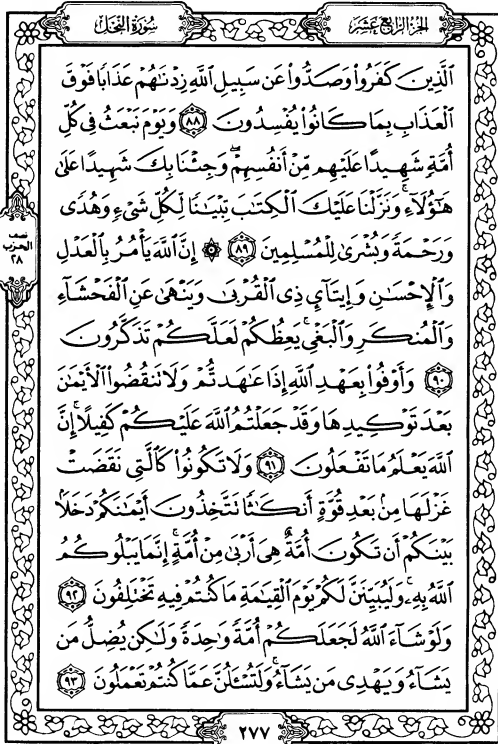 سُورَةُ النَّحۡلِ
الجُزۡءُ الرَّابِعُ عَشَرَ
ٱلَّذِينَ كَفَرُواْ وَصَدُّواْ عَن سَبِيلِ ٱللَّهِ زِدۡنَٰهُمۡ عَذَابٗا فَوۡقَ
ٱلۡعَذَابِ بِمَا كَانُواْ يُفۡسِدُونَ ٨٨ وَيَوۡمَ نَبۡعَثُ فِي كُلِّ
أُمَّةٖ شَهِيدًا عَلَيۡهِم مِّنۡ أَنفُسِهِمۡۖ وَجِئۡنَا بِكَ شَهِيدًا عَلَىٰ
هَٰٓؤُلَآءِۚ وَنَزَّلۡنَا عَلَيۡكَ ٱلۡكِتَٰبَ تِبۡيَٰنٗا لِّكُلِّ شَيۡءٖ وَهُدٗى
وَرَحۡمَةٗ وَبُشۡرَىٰ لِلۡمُسۡلِمِينَ ٨٩ ۞ إِنَّ ٱللَّهَ يَأۡمُرُ بِٱلۡعَدۡلِ
وَٱلۡإِحۡسَٰنِ وَإِيتَآيِٕ ذِي ٱلۡقُرۡبَىٰ وَيَنۡهَىٰ عَنِ ٱلۡفَحۡشَآءِ
وَٱلۡمُنكَرِ وَٱلۡبَغۡيِۚ يَعِظُكُمۡ لَعَلَّكُمۡ تَذَكَّرُونَ
٩٠ وَأَوۡفُواْ بِعَهۡدِ ٱللَّهِ إِذَا عَٰهَدتُّمۡ وَلَا تَنقُضُواْ ٱلۡأَيۡمَٰنَ
بَعۡدَ تَوۡكِيدِهَا وَقَدۡ جَعَلۡتُمُ ٱللَّهَ عَلَيۡكُمۡ كَفِيلًاۚ إِنَّ
ٱللَّهَ يَعۡلَمُ مَا تَفۡعَلُونَ ٩١ وَلَا تَكُونُواْ كَٱلَّتِي نَقَضَتۡ
غَزۡلَهَا مِنۢ بَعۡدِ قُوَّةٍ أَنكَٰثٗا تَتَّخِذُونَ أَيۡمَٰنَكُمۡ دَخَلَۢا
بَيۡنَكُمۡ أَن تَكُونَ أُمَّةٌ هِيَ أَرۡبَىٰ مِنۡ أُمَّةٍۚ إِنَّمَا يَبۡلُوكُمُ
ٱللَّهُ بِهِۦۚ وَلَيُبَيِّنَنَّ لَكُمۡ يَوۡمَ ٱلۡقِيَٰمَةِ مَا كُنتُمۡ فِيهِ تَخۡتَلِفُونَ ٩٢
وَلَوۡ شَآءَ ٱللَّهُ لَجَعَلَكُمۡ أُمَّةٗ وَٰحِدَةٗ وَلَٰكِن يُضِلُّ مَن
يَشَآءُ وَيَهۡدِي مَن يَشَآءُۚ وَلَتُسۡـَٔلُنَّ عَمَّا كُنتُمۡ تَعۡمَلُونَ ٩٣
نصف
الحزب
٢٨
٢٧٧